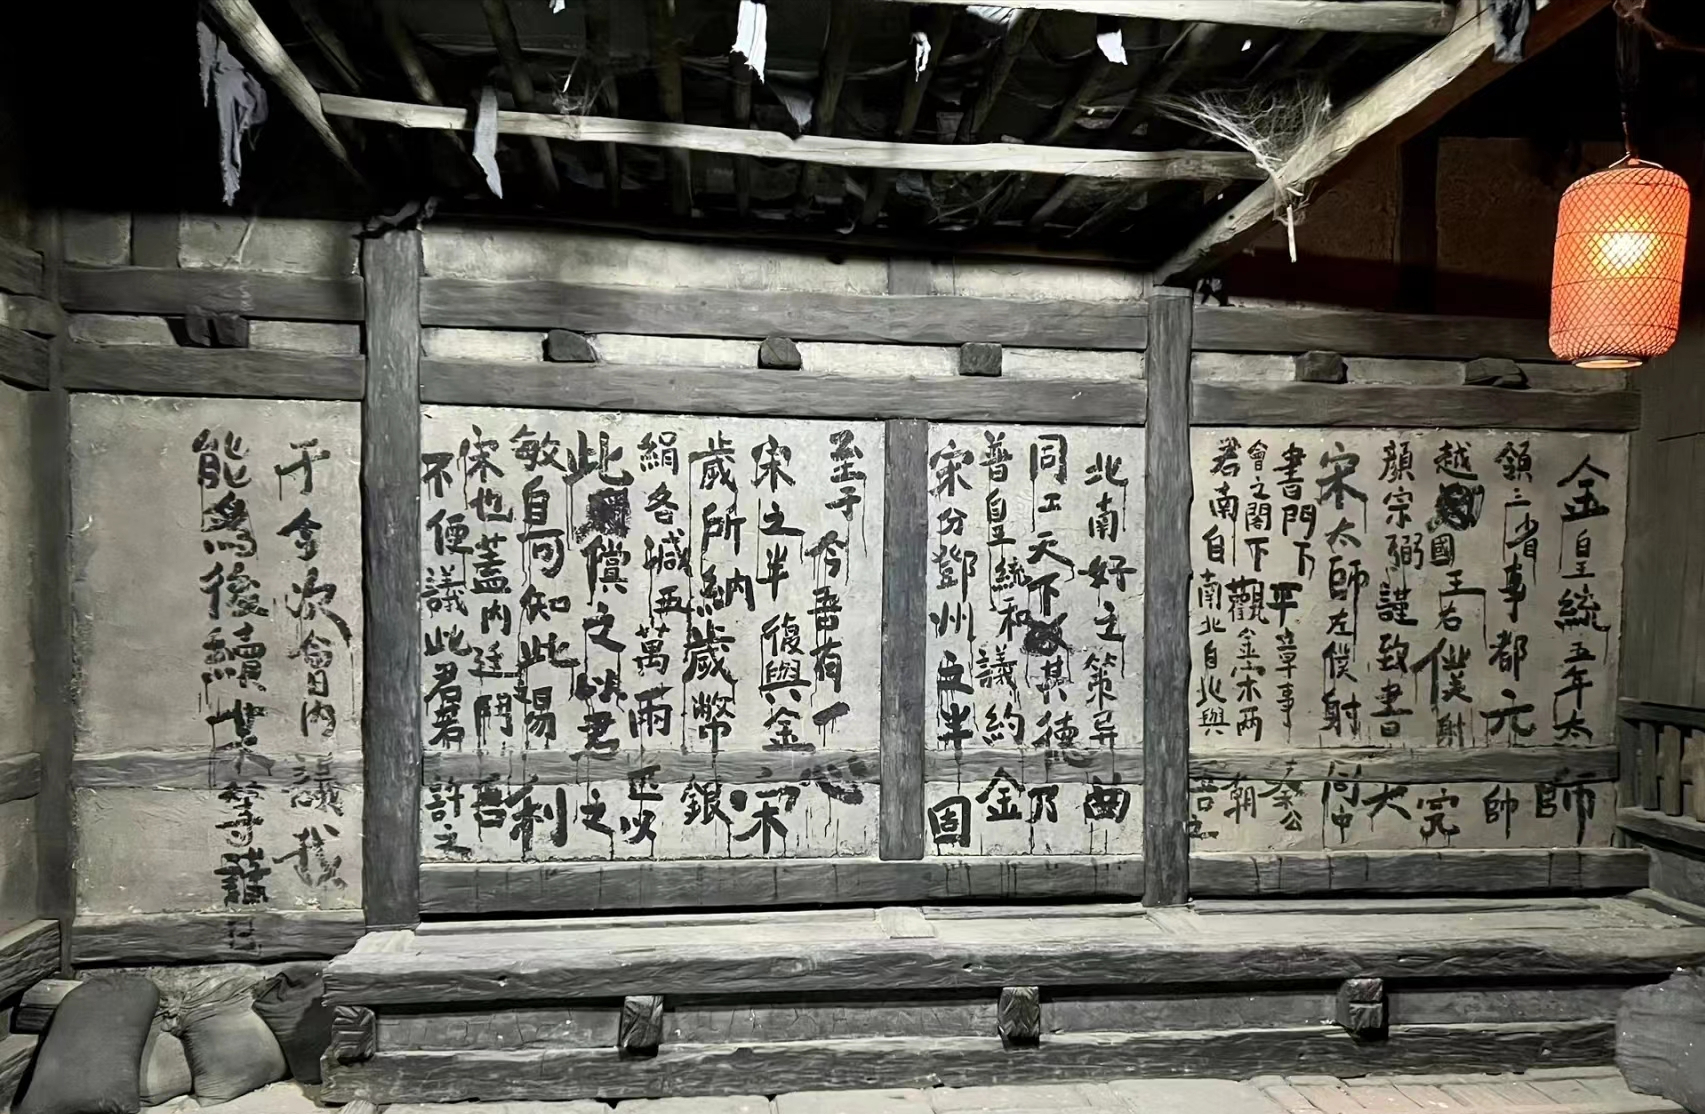 金皇統五年太師
領三省事都元帥
越國王若僕射完
顏宗弼謹致書大
宋太師左僕射同中
書門下平章事秦公
會之閣下觀金宋兩朝
君南自南北自北與吾之
北南好之策异曲
同工天下其德乃
普皇統和議約金
宋份鄧州之半固
至于今吾有一心
宋之半復與金宋
歲所納歲幣銀
絹各減五萬兩匹以
此償之以君之
敏自可知此易利
宋也蓋內廷鬥吾
不便議此君若許之
于今次會日內議我
能為後續其等諸